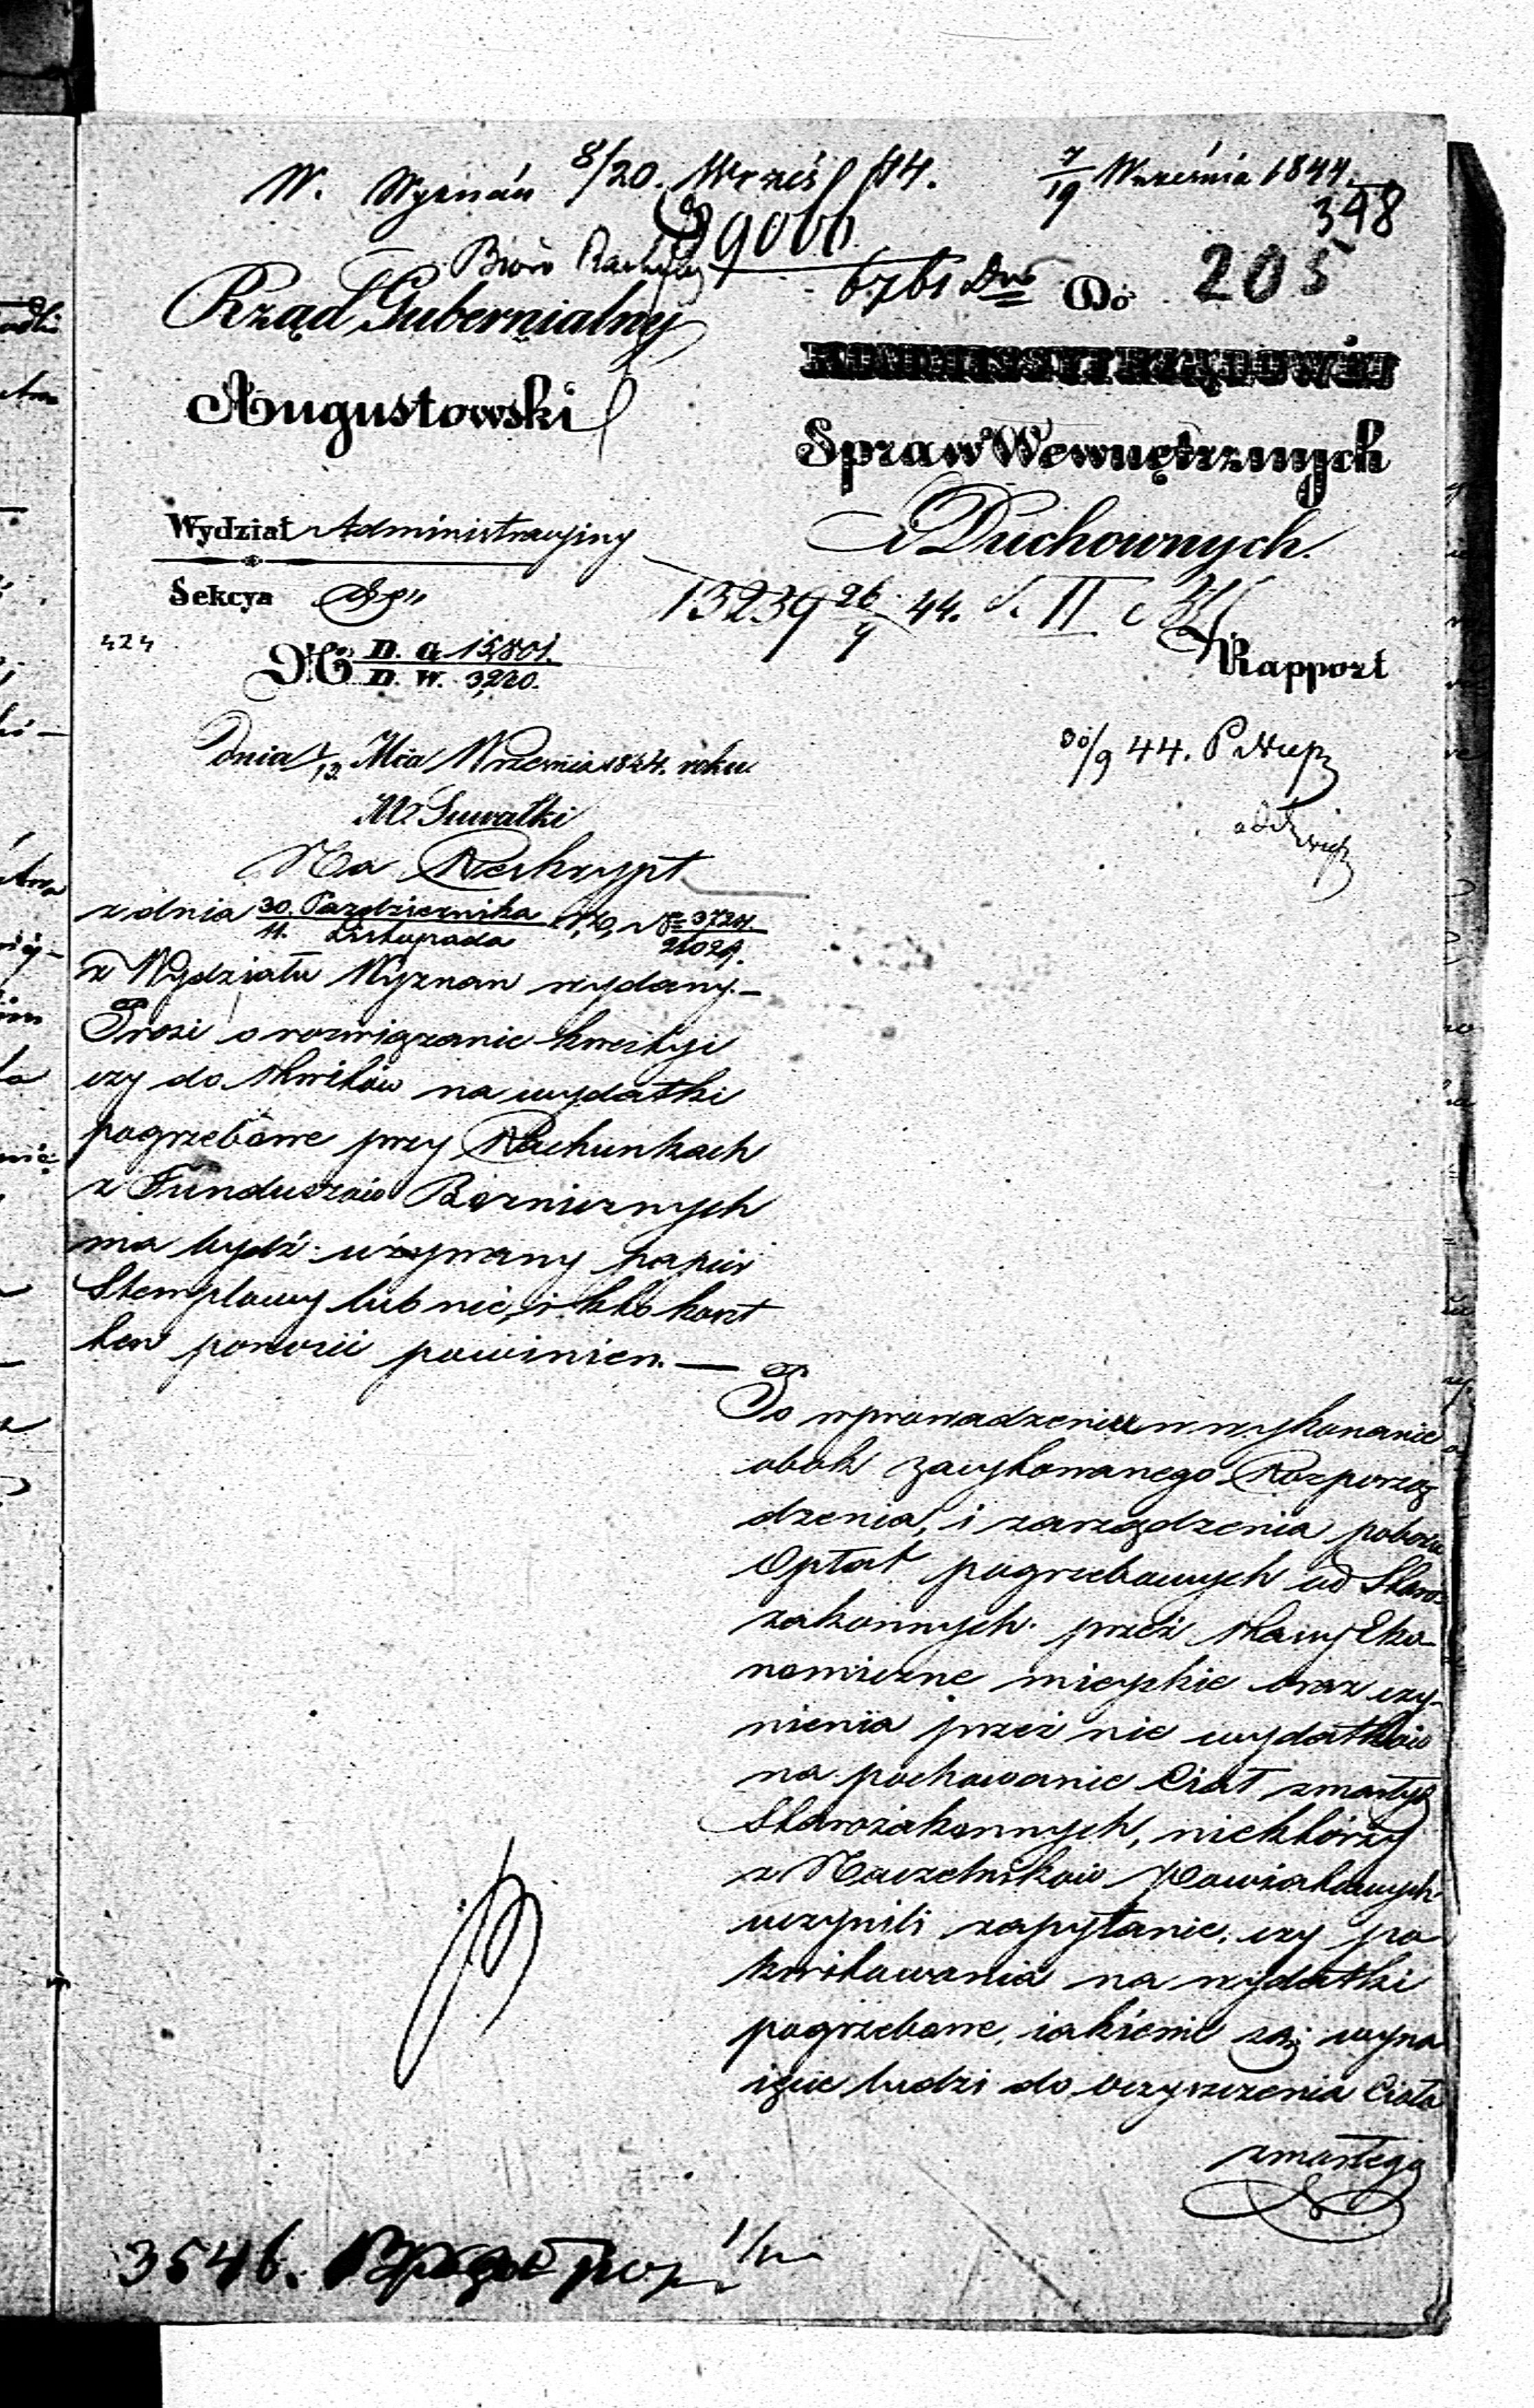 W. Wyznań 8/20. Wrześ 44.
7/19 Września 1844.
348
99066
Biuro
6761 Dno
205
Do
Rząd Gubernialny
Augustowski
KOMMISSYI RZĄDOWÉY
Spraw Wewnętrznych
i Duchownych.
Wydział Administracyiny
Sekcya
13239 26/9 44. II
424
No D. A 15801.
D. W. 3220.
Rapport
Dnia 1/13 Mca Września 1844. roku
M. Suwałki
/9 44. P
Na Reskrypt
z dnia 30. Pazdziernika No 3724.
11. Listopada 21029.
z Wydziału Wyznan wydany.—
Prosi o rozwiązanie kwestyi
czy do kwitów na wydatki
pogrzebowe przy Rachunkach
z Funduszów Bożnicznych
ma bydź używany papier
Stemplowy lub nie, i kto koszt
ten ponosić powinien.—
Po wprowadzeniu w wykonanie
obok zacytowanego Rozporzą
dzenia, i zarządzenia poboru
Opłat pogrzebowych od Staro-
zakonnych przez Kassy Eko-
nomiczne mieyskie oraz czy-
nienia przez nie wydatków
na pochowanie Ciał zmarłych
Starozakonnych, niektórzy
z Naczelników Powiatowych
uczynili zapytanie, czy po
kwitowania na wydatki
pogrzebowe, iakiemi są: wyna
ięcie ludzi do oczyszczenia Ciała
zmarłego
3546.